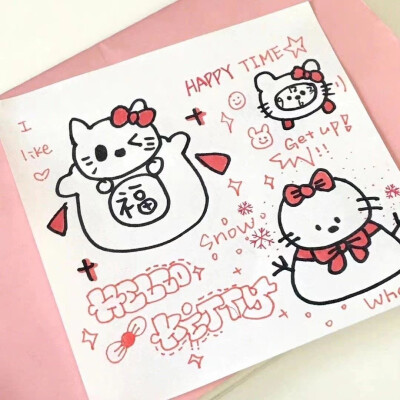 HAPPY TIME
I
like
Get up!
!!
:)
福
Snow
HELLO
KITTY
Whe